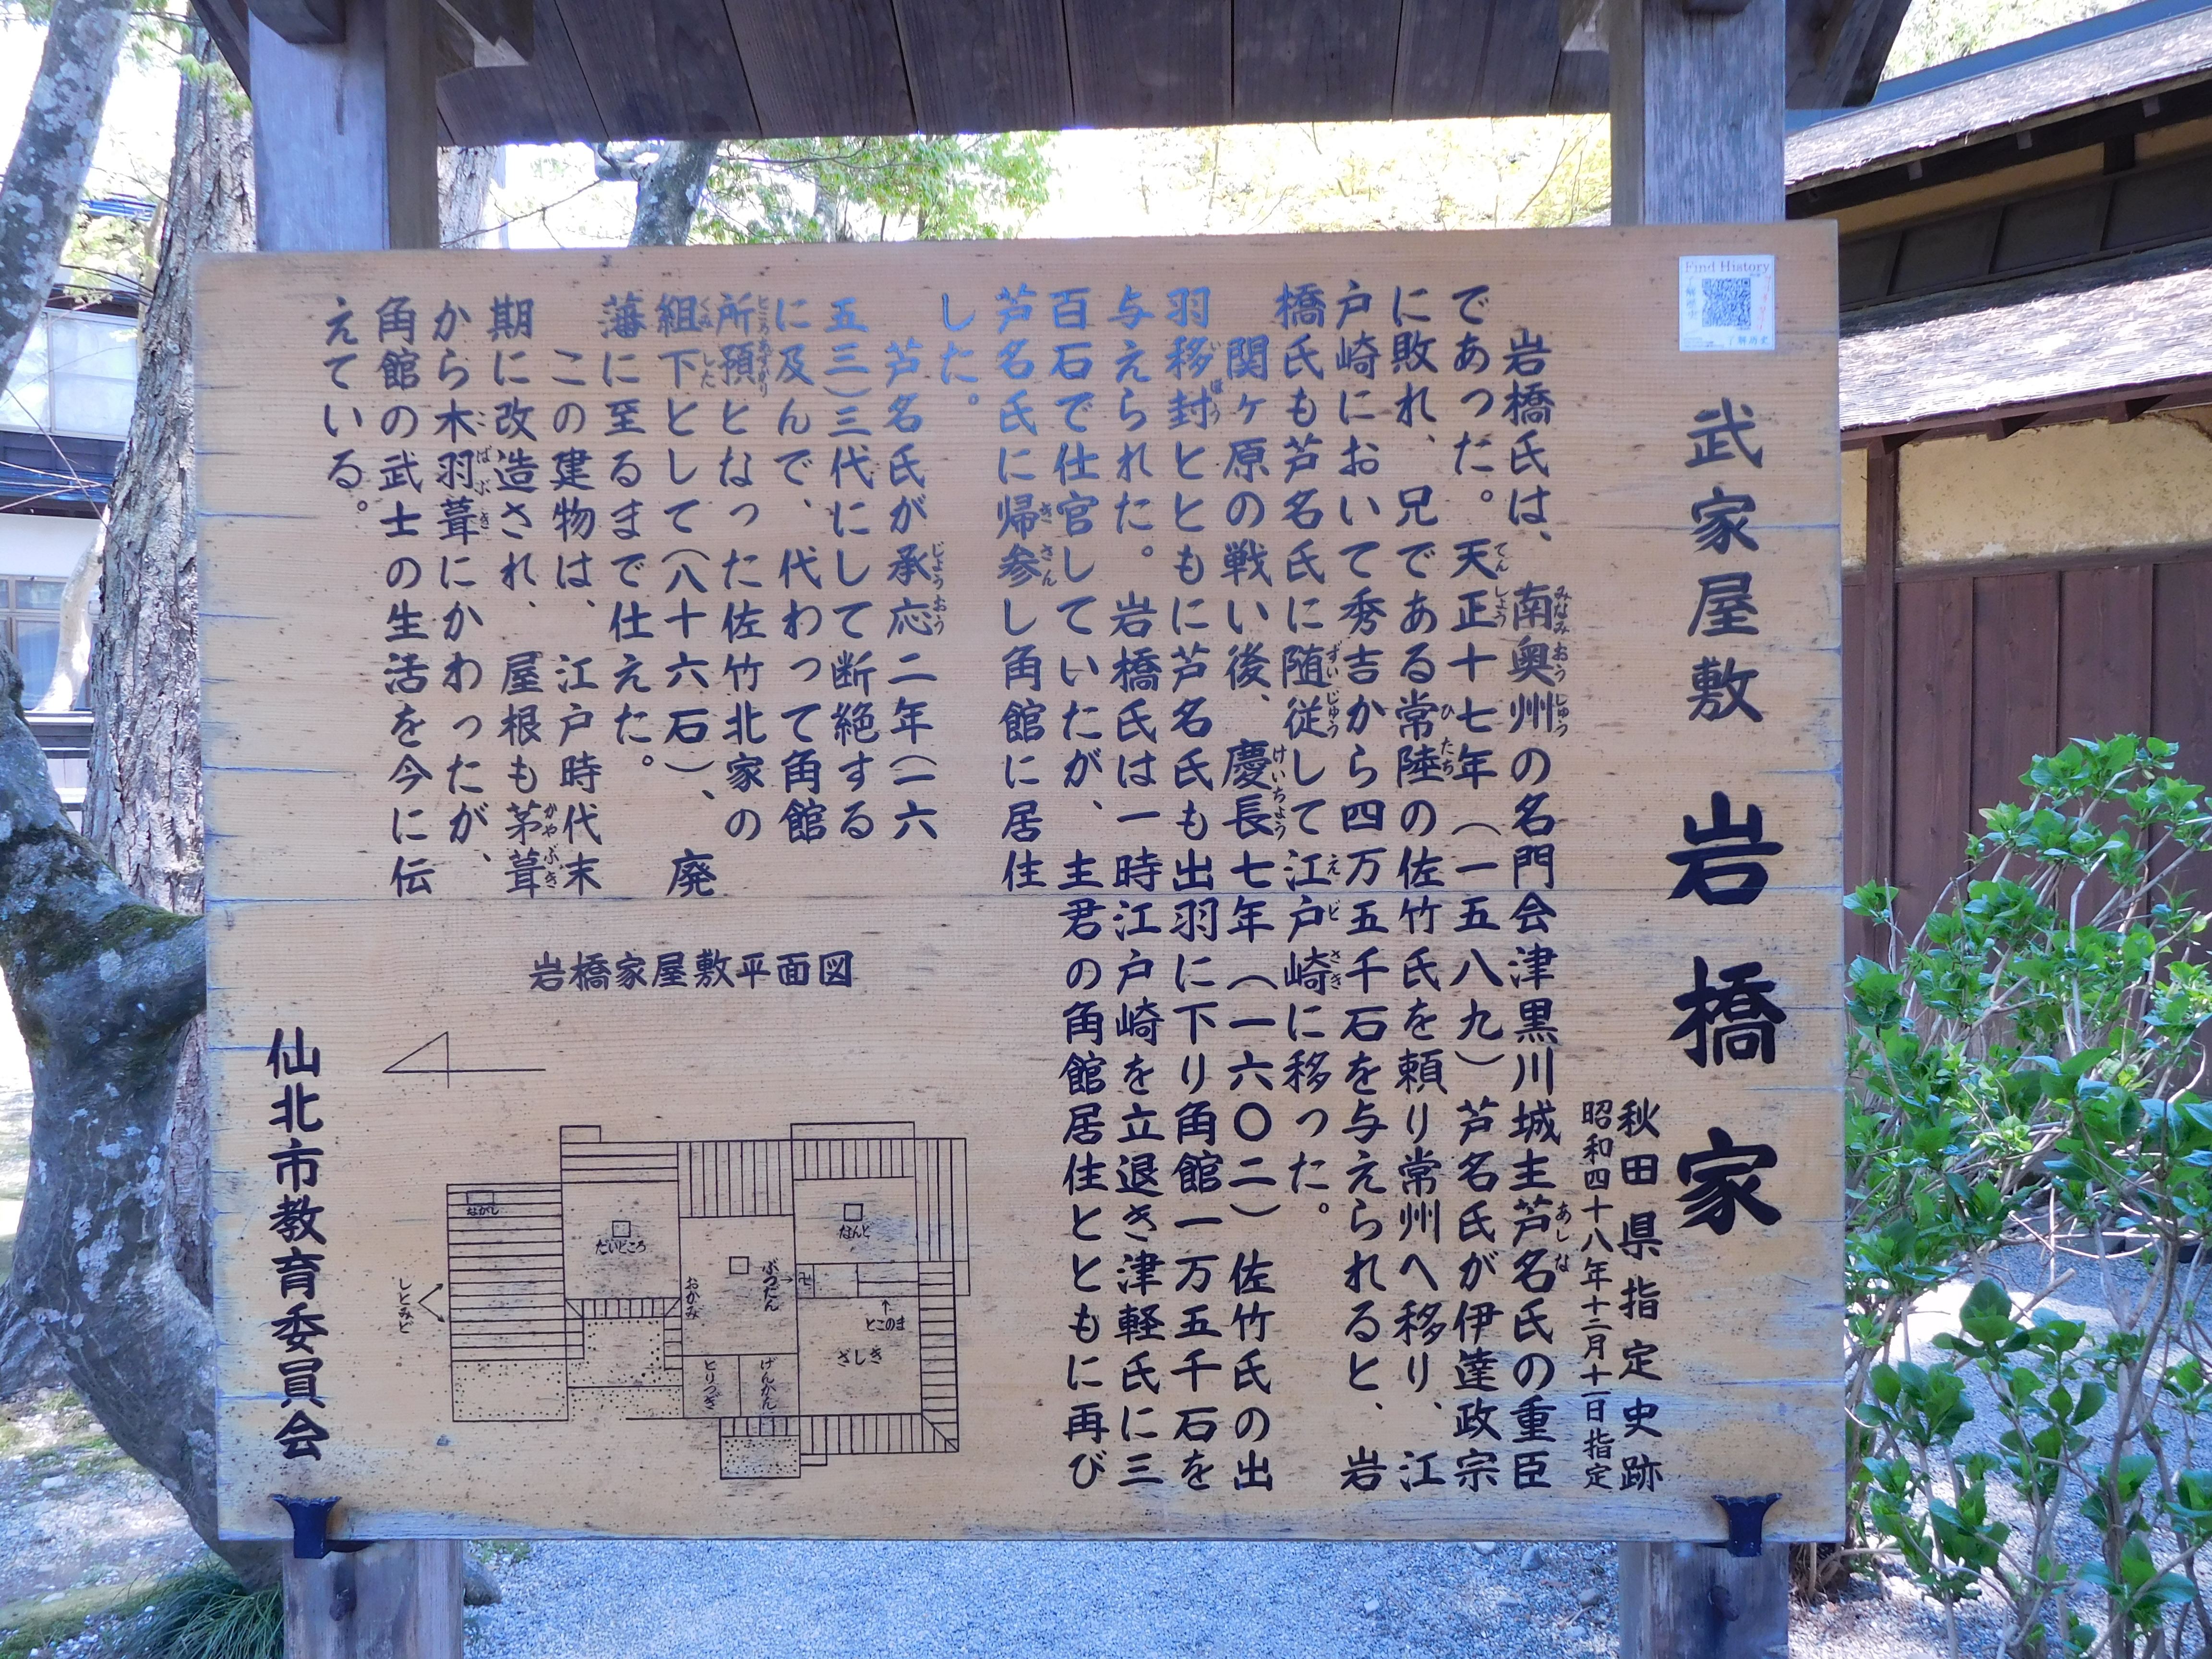 武家屋敷 岩橋家
秋田県指定史跡
昭和四十八年十二月十一日指定
岩橋氏は、南奥州の名門会津黒川城主芦名氏の重臣
であった。天正十七年(一五八九)芦名氏が伊達政宗
に敗れ、兄である常陸の佐竹氏を頼り常州へ移り、江
戸崎において秀吉から四万五千石を与えられると、岩
橋氏も芦名氏に随従して江戸崎に移った。
関ヶ原の戦い後、慶長七年(一六〇二)佐竹氏の出
羽移封とともに芦名氏も出羽に下り角館一万五千石を
与えられた。岩橋氏は一時江戸崎を立退き津軽氏に三
百石で仕官していたが、主君の角館居住とともに再び
芦名氏に帰参し角館に居住
した。
芦名氏が承応二年(一六
五三)三代にして断絶する
に及んで、代わって角館
所預となった佐竹北家の
組下として(八十六石)、廃
藩に至るまで仕えた。
この建物は、江戸時代末
期に改造され、屋根も茅葺
から木羽葺にかわったが、
角館の武士の生活を今に伝
えている。
岩橋家屋敷平面図
ながし
だいどころ
おかみ
ぶつだん
卍
なんど
とこのま
ざしき
げんかん
とりつぎ
しとみど。
仙北市教育委員会
Find History
了解历史